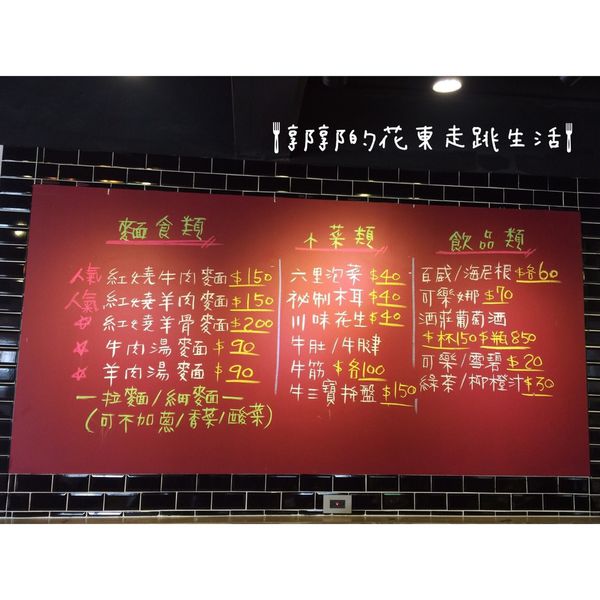 郭郭的花東走跳生活
麵食類
人氣 紅燒牛肉麵 $150
人氣 紅燒羊肉麵 $150
紅燒羊骨麵 $200
牛肉湯麵 $90
羊肉湯麵 $90
一拉麵/細麵一
(可不加蔥/香菜/酸菜)
小菜類
六里泡菜 $40
祕制木耳 $40
川味花生 $40
牛肚/牛腱
牛筋 $各100
牛三寶拚盤 $150
飲品類
百威/海尼根 $各60
可樂娜 $70
酒莊葡萄酒
$杯150 $瓶850
可樂/雪碧 $20
綠茶/柳橙汁 $30